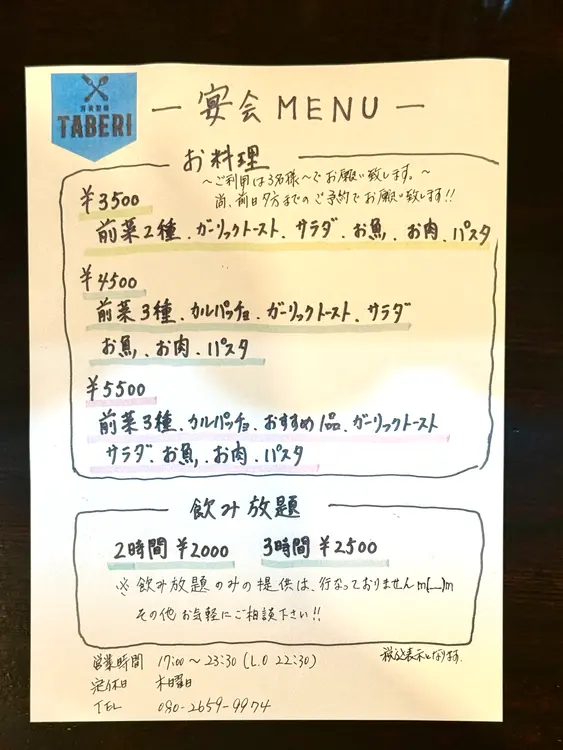 洋食酒場
TABERI
— 宴会 MENU —
お料理
〜ご利用は3名様〜でお願い致します。〜
尚、前日夕方までのご予約でお願い致します!!
¥3500
前菜2種、ガーリックトースト、サラダ、お魚、お肉、パスタ
¥4500
前菜3種、カルパッチョ、ガーリックトースト、サラダ
お魚、お肉、パスタ
¥5500
前菜3種、カルパッチョ、おすすめ1品、ガーリックトースト
サラダ、お魚、お肉、パスタ
飲み放題
2時間 ¥2000 3時間 ¥2500
※ 飲み放題のみの提供は、行なっておりませんm(__)m
その他お気軽にご相談下さい!!
税込表示となります。
営業時間 17:00〜23:30 (L.O 22:30)
定休日 木曜日
TEL 090-2659-9974